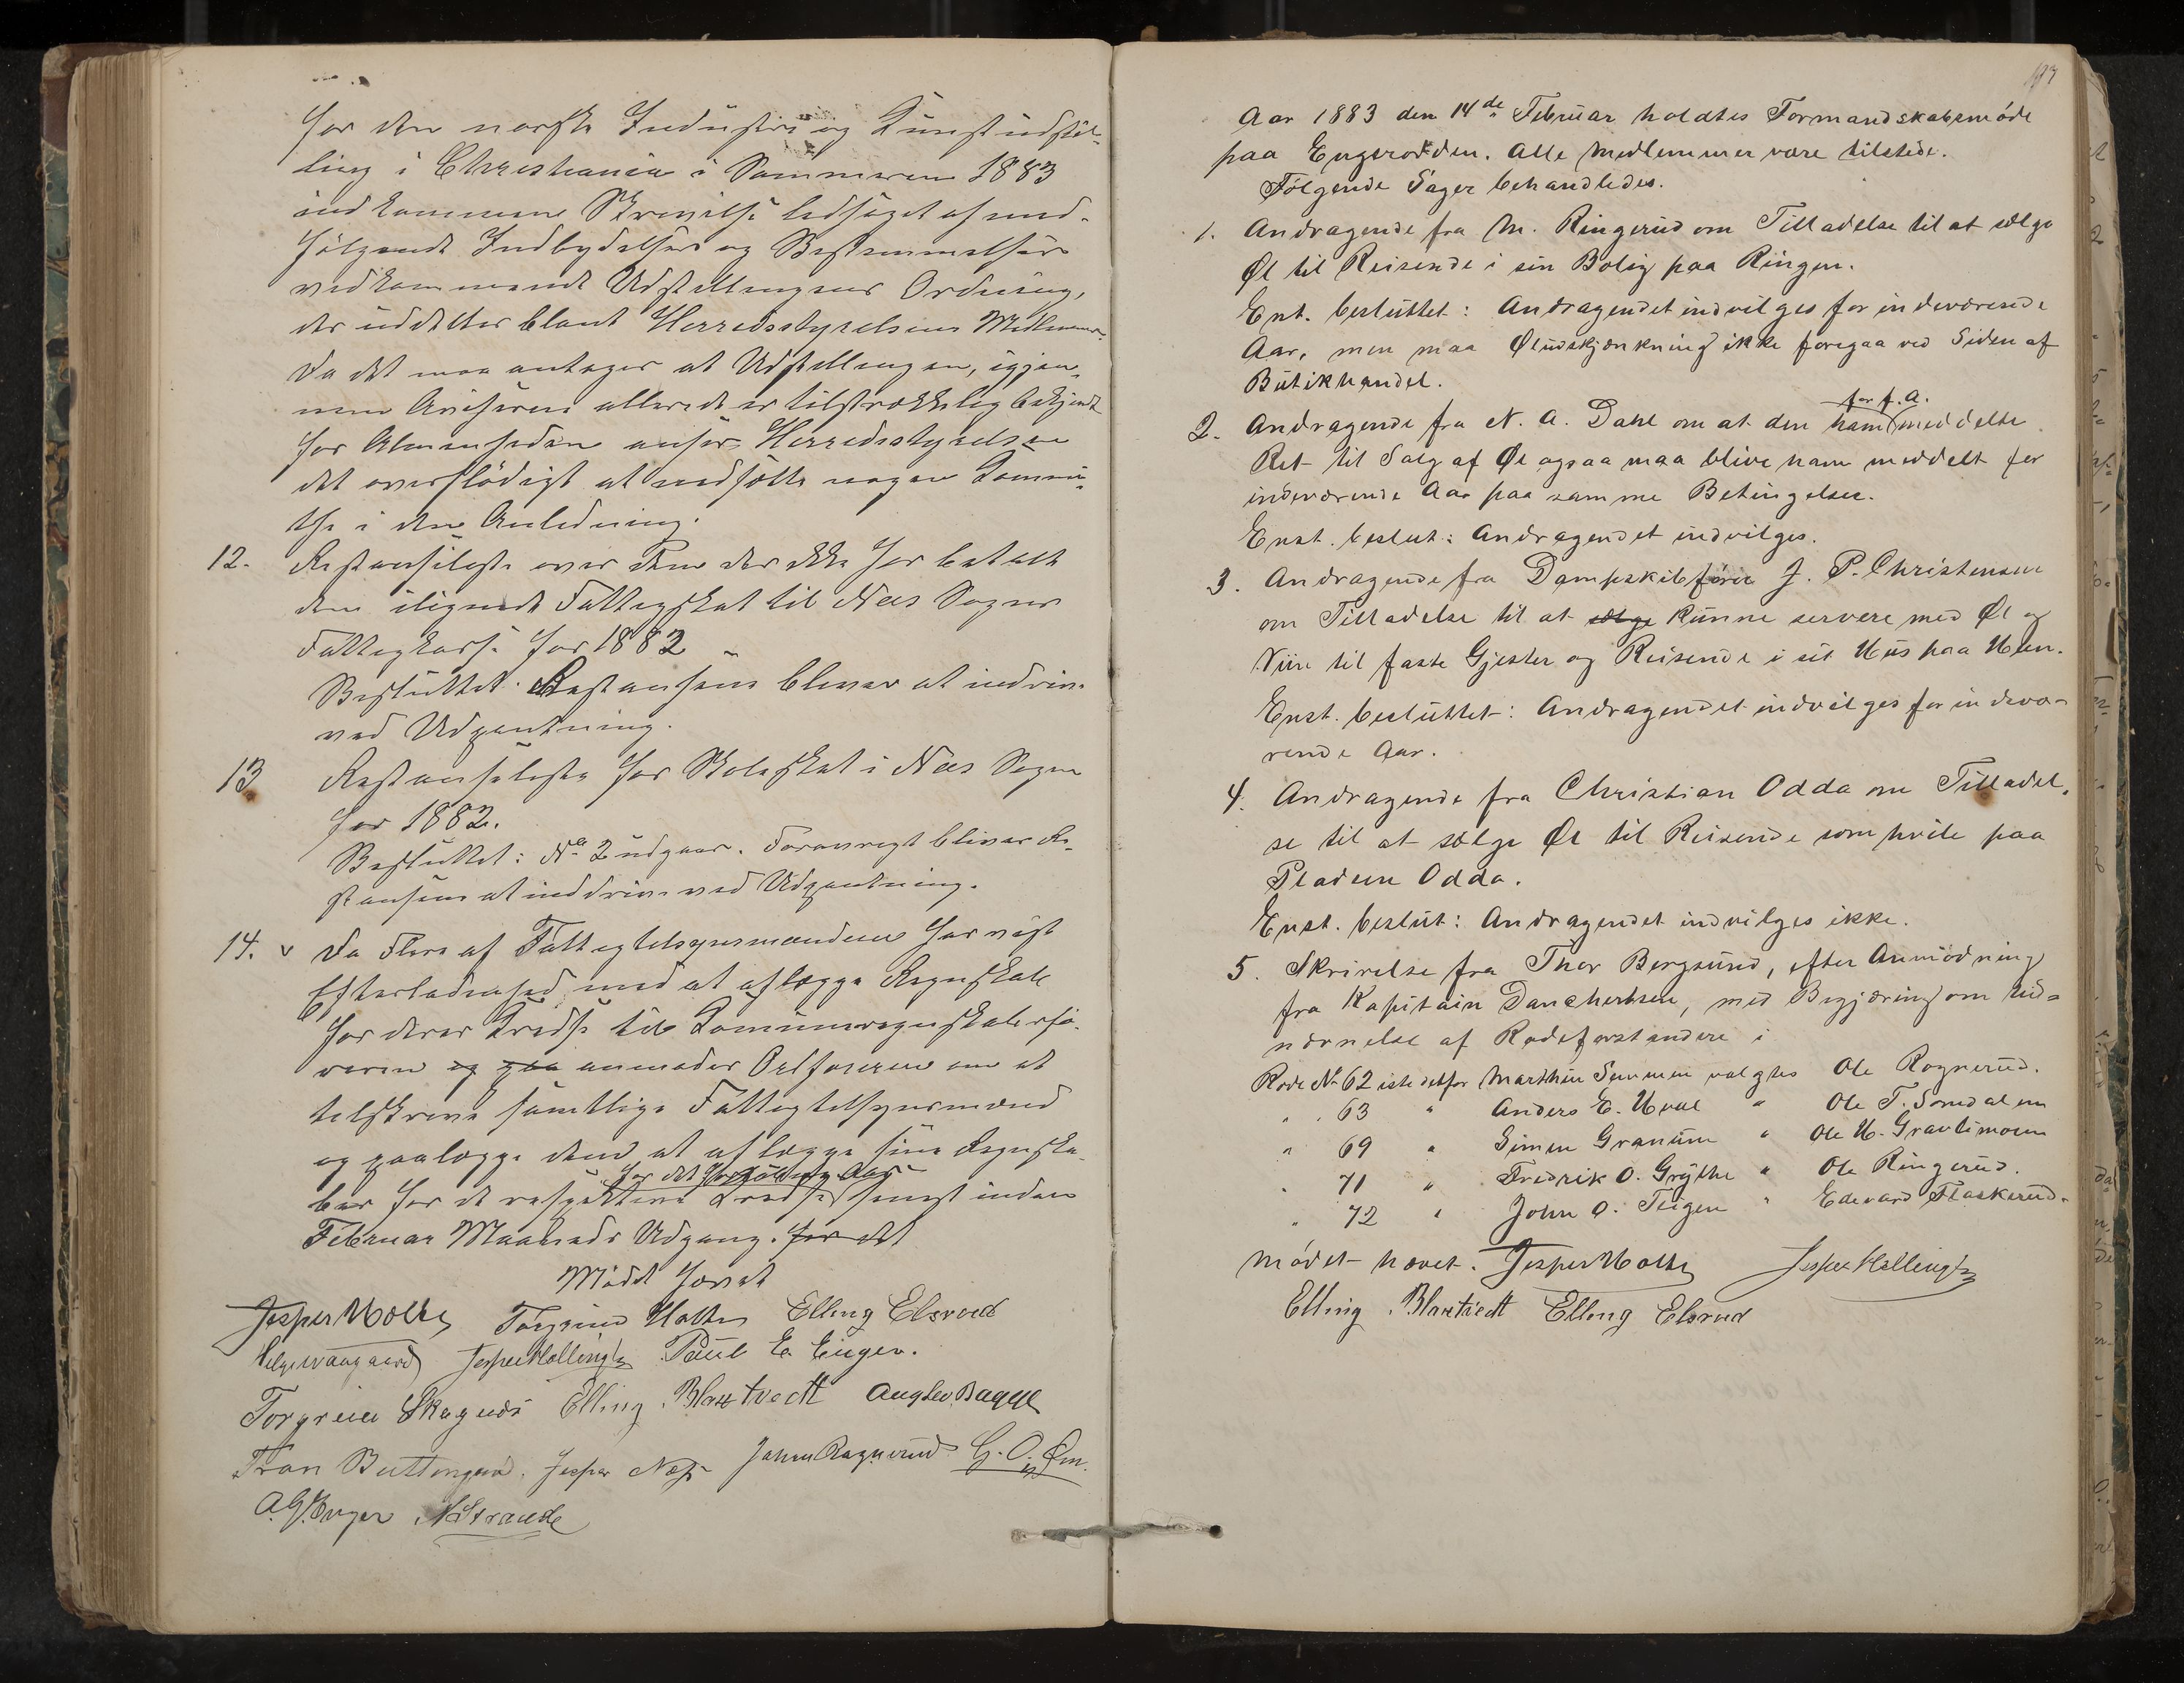 for den norske Industri og Kunstudstil-
ling i Christiania i Sommeren 1883
indkommen Skrivelse ledsaget af med-
følgende Indbydelser og Bestemmelser
vedkommende Udstillingens Ordning,
der uddeltes blant Herredsstyrelsens Medlemmer.
Da det maa antages at Udstillingen, igjen-
nem Aviserne allerede er tilstrækkelig bekjendt
for Almenheden anser Herredsstyrelsen
det overflødigt at nedsætte nogen Komi-
the i den Anledning.
12. Restanseliste over dem der ikke har betalt
den ilignede Fattigskat til Næs Sogns
Fattigkasse for 1882
Besluttet: Restansene bliver at inddrive
ved Udpantning.
13 Restanseliste for Skoleskat i Næs Sogn
for 1882.
Besluttet: No 2 udgaar. Forøvrigt bliver Re-
stansene at inddrive ved Udpantning.
14. v Da Flere af Fattigtilsynsmændene har vist
Efterladenhed med at aflægge Regnskab
for deres Kredse til Kommuneregnskabsfø-
reren og paa anmodes Ordføreren om at
tilskrive samtlige Fattigtilsynsmænd
og paalægge dem at aflægge sine Regnska-
for det forløbne Aar
ber for de respektive Kredse senest inden
Februar Maaneds Udgang. for det
Mødet hævet
Jesper Molke Torgrim Halten Elling Elsrud
Helge Waagaard Jesper Halling Paul E. Eiigen.
Torgrim Skagnæs Elling Blaxtvedt Augheu Bagge
Tron Buttingsrud. Jesper Næss Johan Ragnerud G. O. Øen.
A. G. Unger NStrande

Aar 1883 den 14de Februar holdtes Formandskabsmøde
paa Engerodden. Alle Medlemmer vare tilstede.
Følgende Sager behandledes.
1. Andragende fra M. Ringerud om Tilladelse til at sælge
Øl til Reisende i sin Bolig paa Ringen.
Ent. besluttet: Andragendet indvilges for indeværende
Aar, men maa Øludskjænkning ikke foregaa ved Siden af
Butikhandel.
for f. A.
2. Andragende fra N. A. Dahl om at den ham meddelte
Ret til Salg af Øl ogsaa maa blive ham meddelt for
indeværende Aar paa samme Betingelser.
Enst. beslut: Andragendet indvilges.
3. Andragende fra Dampskibfører J. P. Christensen
om Tilladelse til at sælge kunne servere med Øl og
Viin til faste Gjester og Reisende i sit Hus paa Hæn.
Enst. besluttet: Andragendet indvilges for indevæ-
rende Aar.
4. Andragende fra Christian Odda om Tilladel-
se til at sælge Øl til Reisende som hvile paa
Pladsen Odda.
Enst. beslut: Andragendet indvilges ikke.
5. Skrivelse fra Thor Bergsund, efter Anmodning
fra Kapitain Danchertsen, med Begjæring om Ud-
nævnelse af Rodeforstandere i
Rode No 62 istedetfor Marthin Semmen valgtes Ole Rognerud.
" " 63 " Anders E. Hval " Ole T. Sørdalen
" 69 " Simen Granum " Ole H. Gravlimoen
" 71 " Fredrik O. Grythe " Ole Ringerud.
" 72 " John O. Teigen " Edevard Flaskerud.
Mødet hævet. Jesper Molke Jesper Halling
Elling Blaxtvedt Elling Elsrud